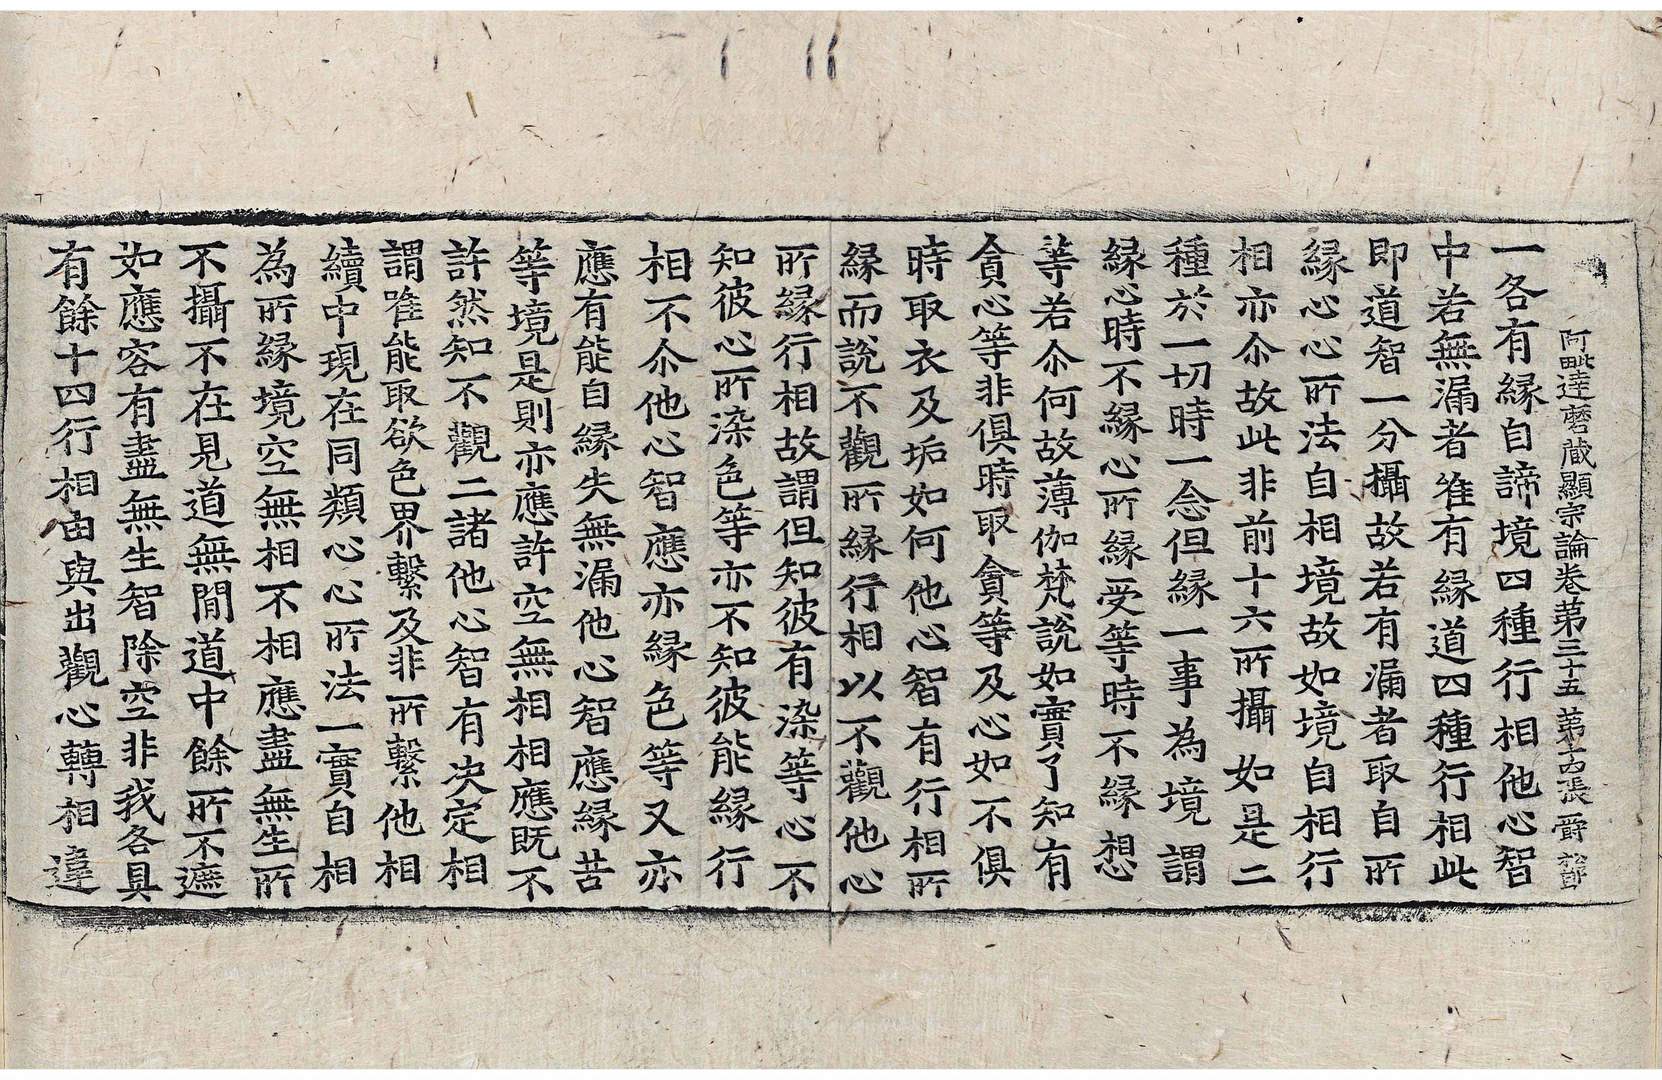 阿毗達磨藏顯宗論卷第三十五 第十五張 爵
一各有緣自諦境四種行相他心智
中若無漏者唯有緣道四種行相此
即道智一分攝故若有漏者取自所
緣心心所法自相境故如境自相行
相亦尒故此非前十六所攝如是二
種於一切時一念但緣一事為境謂
緣心時不緣心所緣受等時不緣想
等若尒何故薄伽梵說如實了知有
貪心等非俱時取貪等及心如不俱
時取衣及垢如何他心智有行相所
緣而說不觀所緣行相以不觀他心
所緣行相故謂但知彼有染等心不
知彼心所染色等亦不知彼能緣行
相不尒他心智應亦緣色等又亦
應有能自緣失無漏他心智應緣苦
等境是則亦應許空無相相應既不
許然知不觀二諸他心智有決定相
謂唯能取欲色界繫及非所繫他相
續中現在同類心心所法一實自相
為所緣境空無相不相應盡無生所
不攝不在見道無間道中餘所不遮
如應容有盡無生智除空非我各具
有餘十四行相由與出觀心轉相違